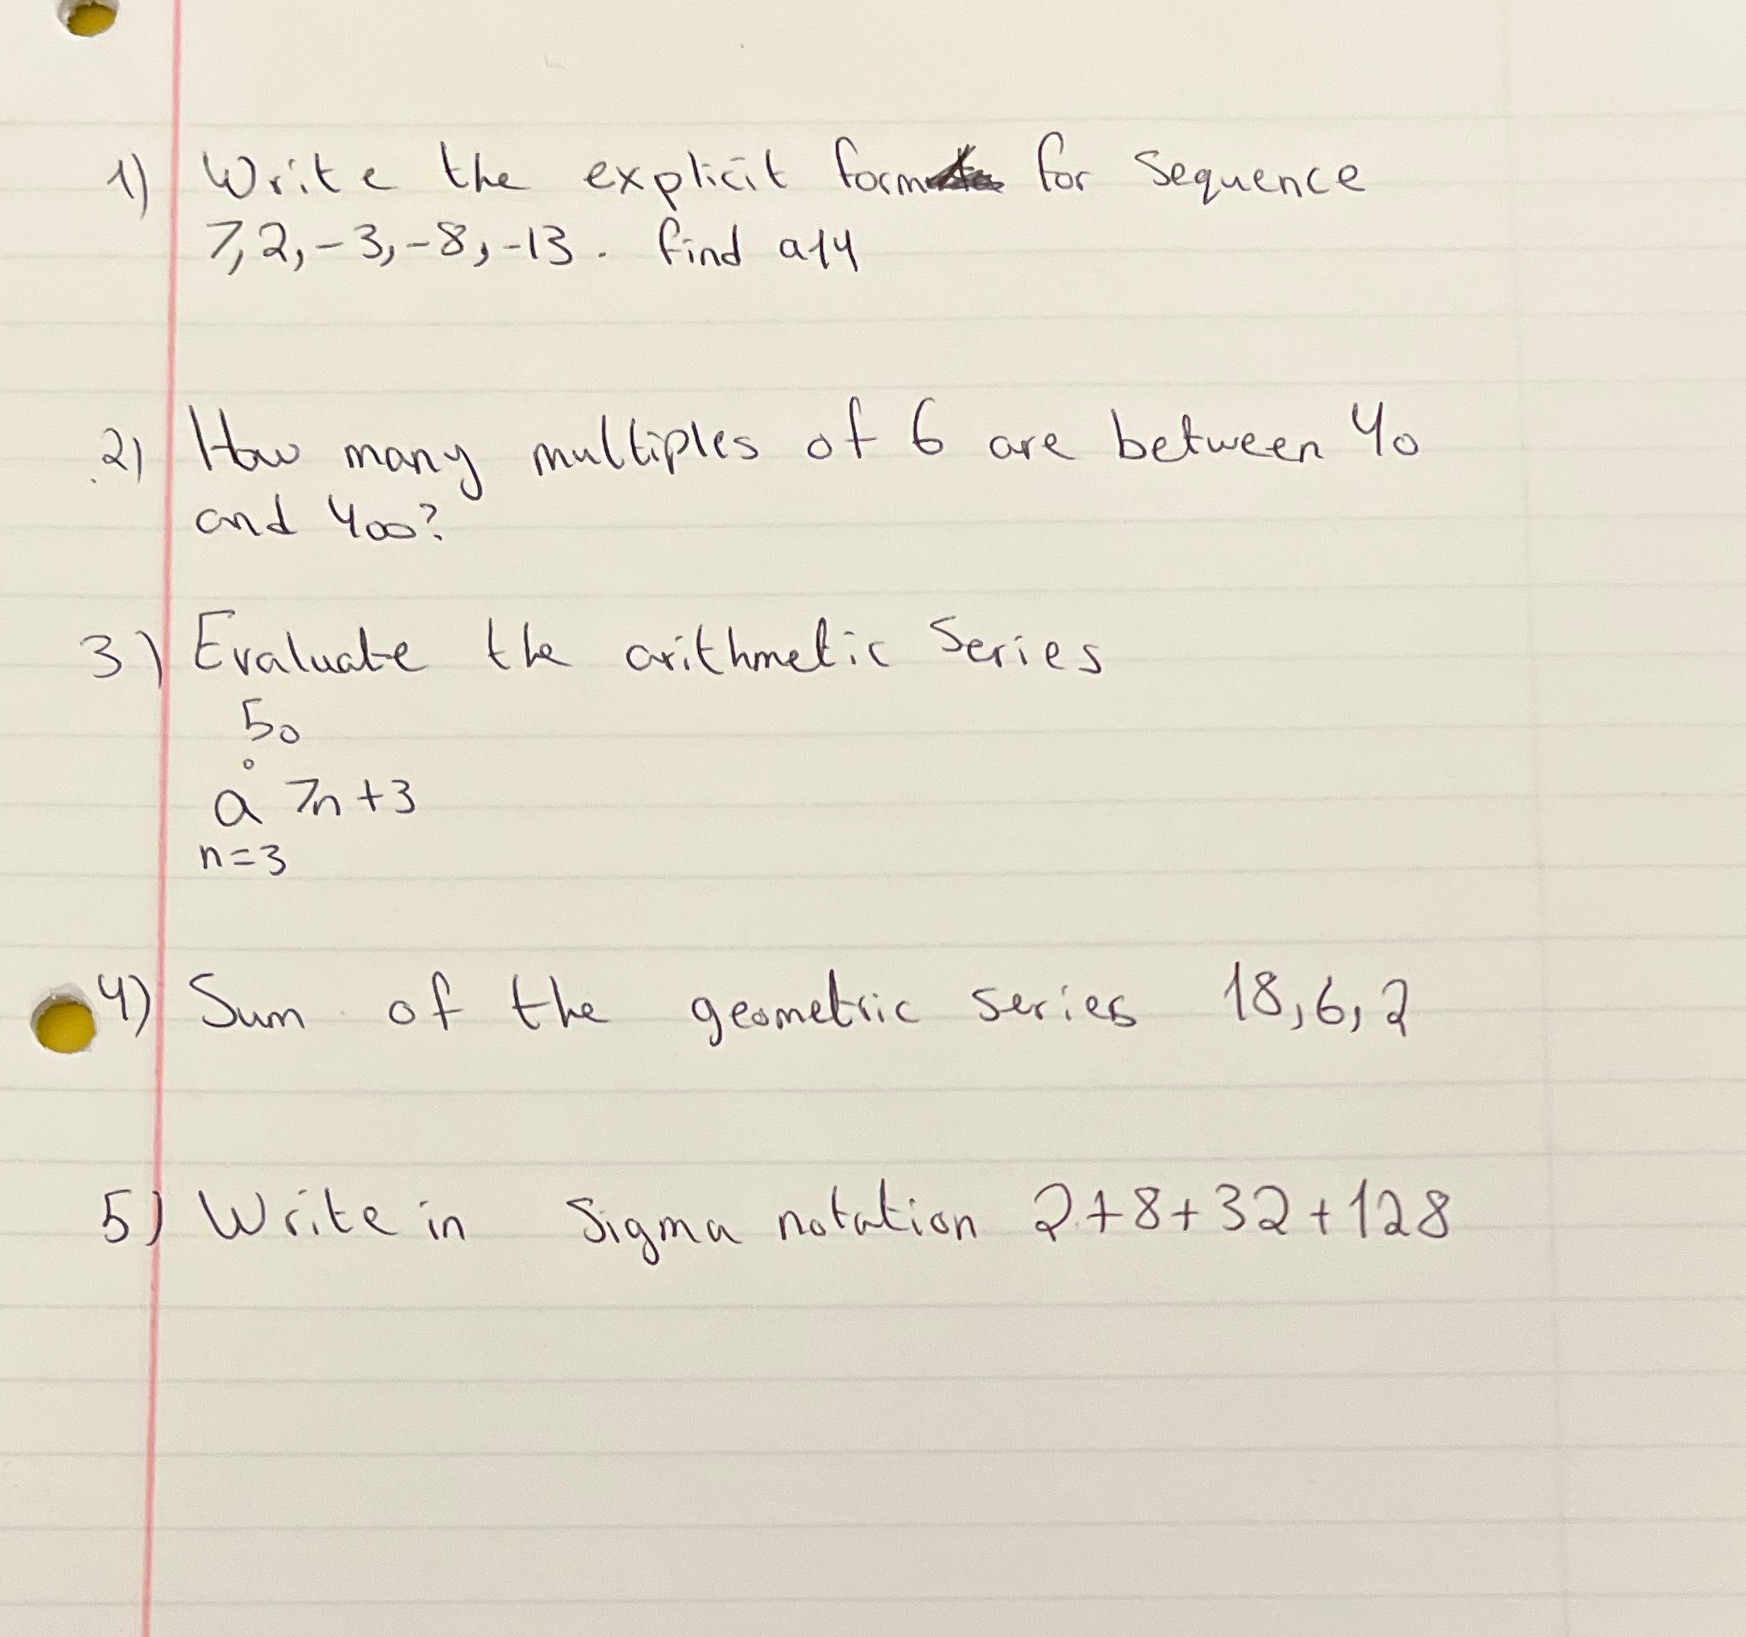 1) Write the explicit form for sequence
7, 2, -3, -8, -13. find a14
2) How many multiples of 6 are between 40
and 400?
3) Evaluate the arithmetic series
50
°
a 7n+3
n=3
4) Sum of the geometric series 18, 6, 2
5) Write in sigma notation 2+8+32+128